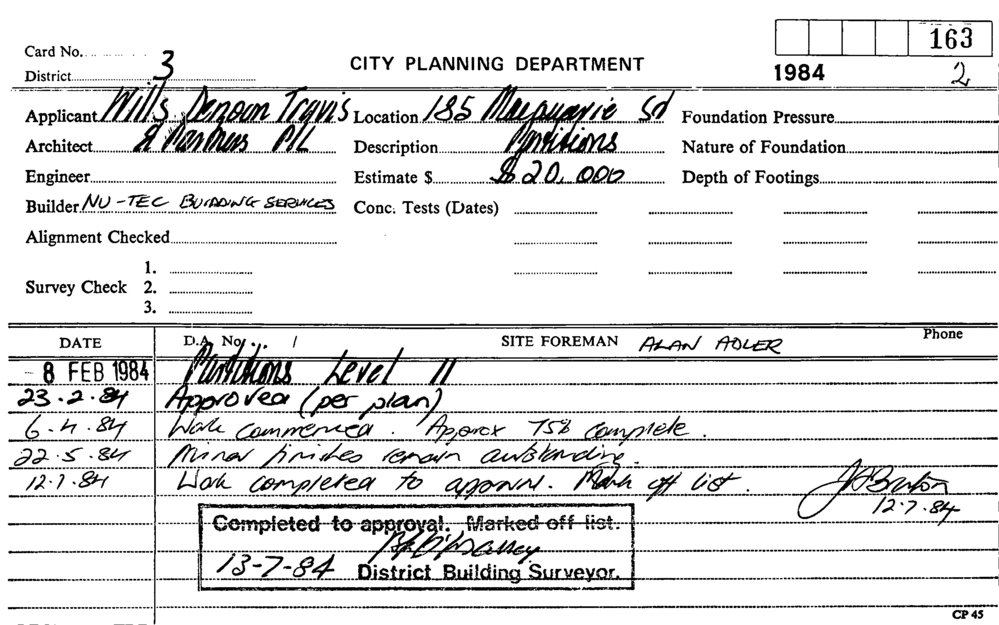 163
Card No.
District 3
CITY PLANNING DEPARTMENT
1984 2
Applicant Wills Denoon Travis Location 185 Macquarie Sd Foundation Pressure
Architect & Partners P/L Description Partitions Nature of Foundation
Engineer Estimate $ $ 20,000 Depth of Footings
Builder NU-TEC BUILDING SERVICES Conc. Tests (Dates)
Alignment Checked
1.
Survey Check 2.
3.
DATE D.A. No. / SITE FOREMAN ALAN ADLER Phone
- 8 FEB 1984 Partitions Level 11
23.2.84 Approved (per plan)
6.4.84 Work commenced. Approx 75% complete.
22.5.84 Minor finishes remain outstanding.
12.7.84 Work completed to approval. Mark off list.
12.7.84
Completed to approval. Marked off list.
13-7-84 District Building Surveyor.
CP 45